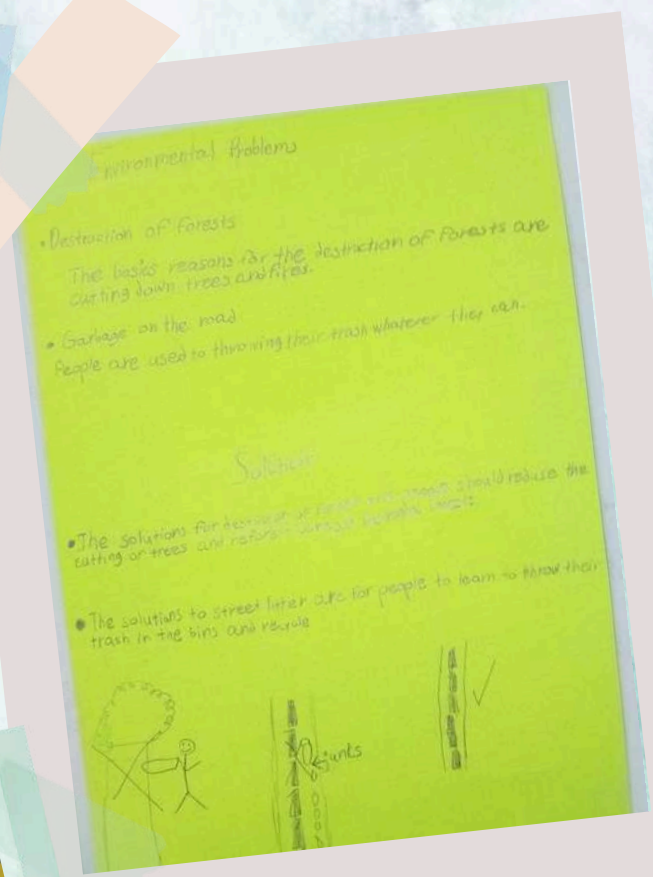 Environmental Problems
• Destruction of Forests
The basics reasons for the destruction of Forests are
cutting down trees and fires.
• Garbage on the road
People are used to throwing their trash whatever they can.
Solution
• The solutions for should reduce the
cutting of trees and
• The solutions to street litter are for people to learn to throw their
trash in the bins and recycle